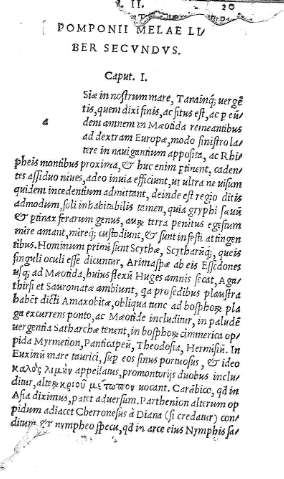 II. 20
POMPONII MELAE LI
BER SECVNDVS.
Caput. I.
Siæ in nostrum mare, Tanainq; uergẽ
tis, quem dixi finis, ac situs est, ac p
a
eudem amnem in Mæotida remeantibus
ad dextram Europæ, modo sinistro la-
tere in nauigantium apposita, ac Rhi
pheis montibus proxima, & huc enim ptinent, caden
tes assiduo niues, adeo inuia efficiunt, ut ultra ne uisum
quidem incedentium admittant, deinde est regio ditis
admodum, soli inhabitabilis tamen, quia gryphi sæuũ
& ptinax ferarum genus, aurũ terra penitus egestum
mire amant, mireq; custodiunt, & sunt infesti attingen
tibus. Hominum primi sunt Scythæ, Scytharũq;, queis
singuli oculi esse dicuntur, Arimaspæ ab eis Essedones
usq; ad Mæotida, huius flexũ Huges amnis secat, Aga
thirsi et Sauromatæ ambiunt, qa pro sedibus plaustra
habẽt dicti Amaxobitæ, obliqua tunc ad bosphorũ pla
ga excurrens ponto, ac Mæotide includitur, in paludẽ
uergentia Satharchæ tenent, in bosphorũ cimmerica op
pida Myrmetion, Panticapeũ, Theodosia, Hermisiũ. In
Euxinũ mare taurici, sup eos sinus portuosus, & ideo
καλὸς λιμὴν appellatus, promontorijs duobus inclu
ditur, alterũ κριοῦ μετωπον uocant. Carãbico, qd in
Asia diximus, par et aduersum. Parthenion alterum op
pidum adiacet Cherronesus à Diana (si credatur) con
ditum & nympheo specu, qd in arce eius Nymphis sa-